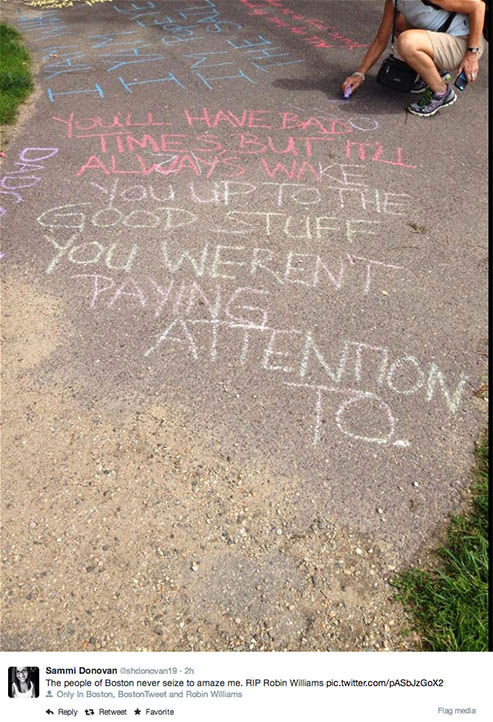 YOU'LL HAVE BAD
TIMES, BUT IT'LL
ALWAYS WAKE
YOU UP TO THE
GOOD STUFF
YOU WEREN'T
PAYING
ATTENTION
TO.
Sammi Donovan @shdonovan19 · 2h
The people of Boston never seize to amaze me. RIP Robin Williams pic.twitter.com/pASbJzGoX2
Only In Boston, BostonTweet and Robin Williams
Reply Retweet Favorite Flag media